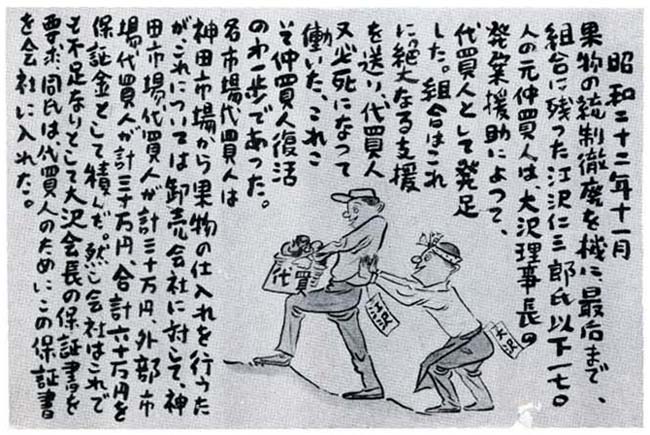 昭和二十二年十一月
果物の統制徹廃を機に、最后まで、
組合に残った江沢仁三郎氏以下一七〇
人の元仲買人は、大沢理事長の
発案援助によって、
代買人として発足
した。組合はこれ
に絶大なる支援
を送り、代買人
又必死になって
働いた、これこ
そ仲買人復活
のオ一歩であった。
各市場代買人は
神田市場から果物の仕入れを行うた
がこれについては卸売会社に対して、神
田市場代買人が計三十万円、外部市
場代買人が計三十万円、合計六十万円を
保証金として積んだ。然し会社はこれで
も不足なりとして大沢会長の保証書を
要求、同氏は、代買人のためにこの保証書
を会社に入れた。
代買
江沢
大沢